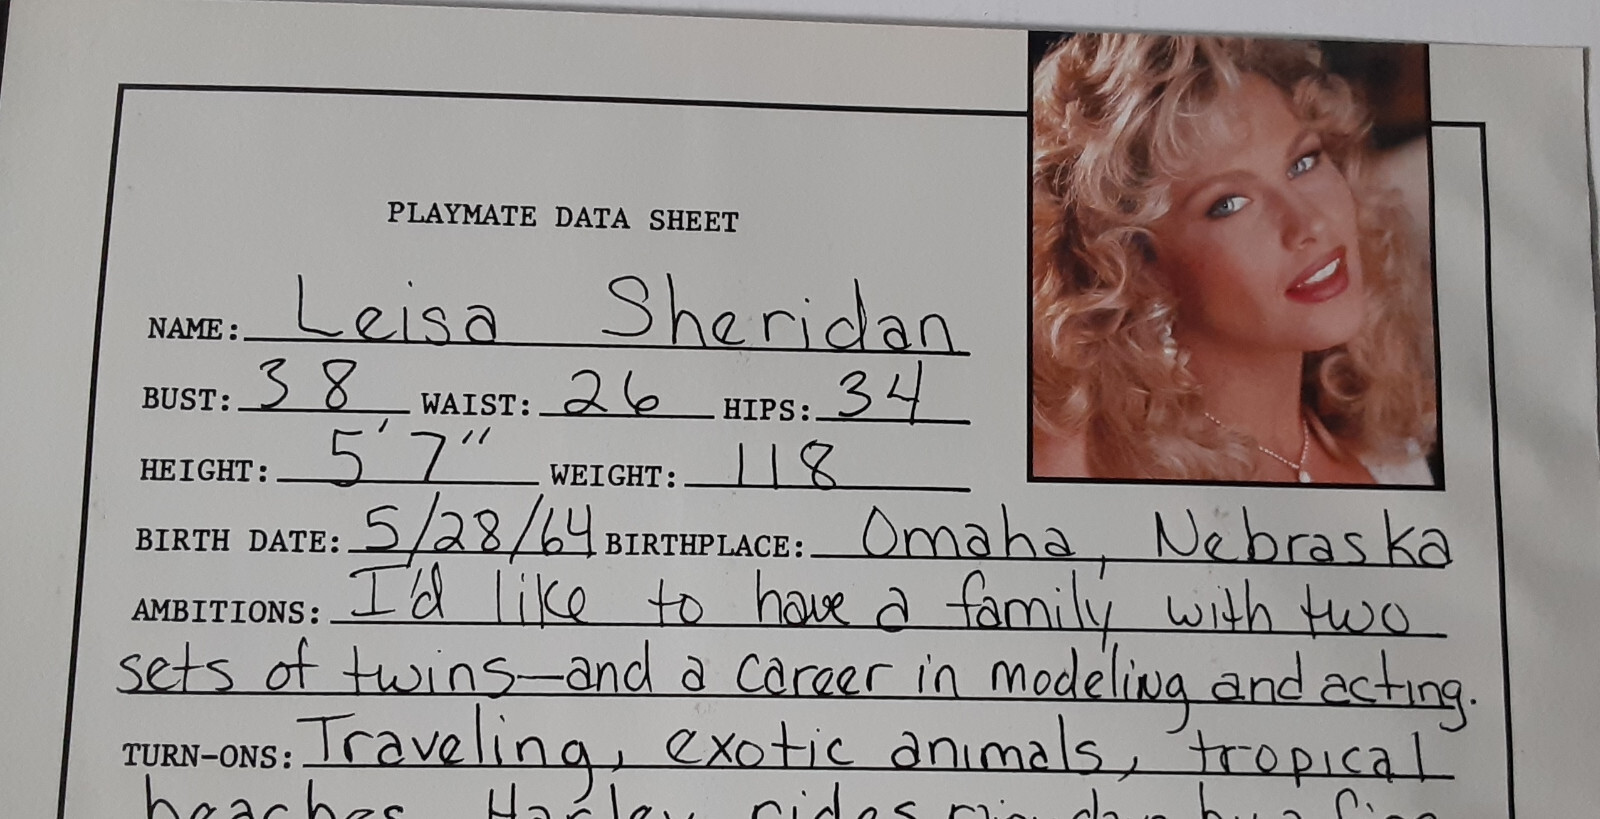 PLAYMATE DATA SHEET
NAME: Leisa Sheridan
BUST: 38 WAIST: 26 HIPS: 34
HEIGHT: 5'7" WEIGHT: 118
BIRTH DATE: 5/28/64 BIRTHPLACE: Omaha, Nebraska
AMBITIONS: I'd like to have a family with two
sets of twins—and a career in modeling and acting.
TURN-ONS: Traveling, exotic animals, tropical
beaches, Harley rides, by a